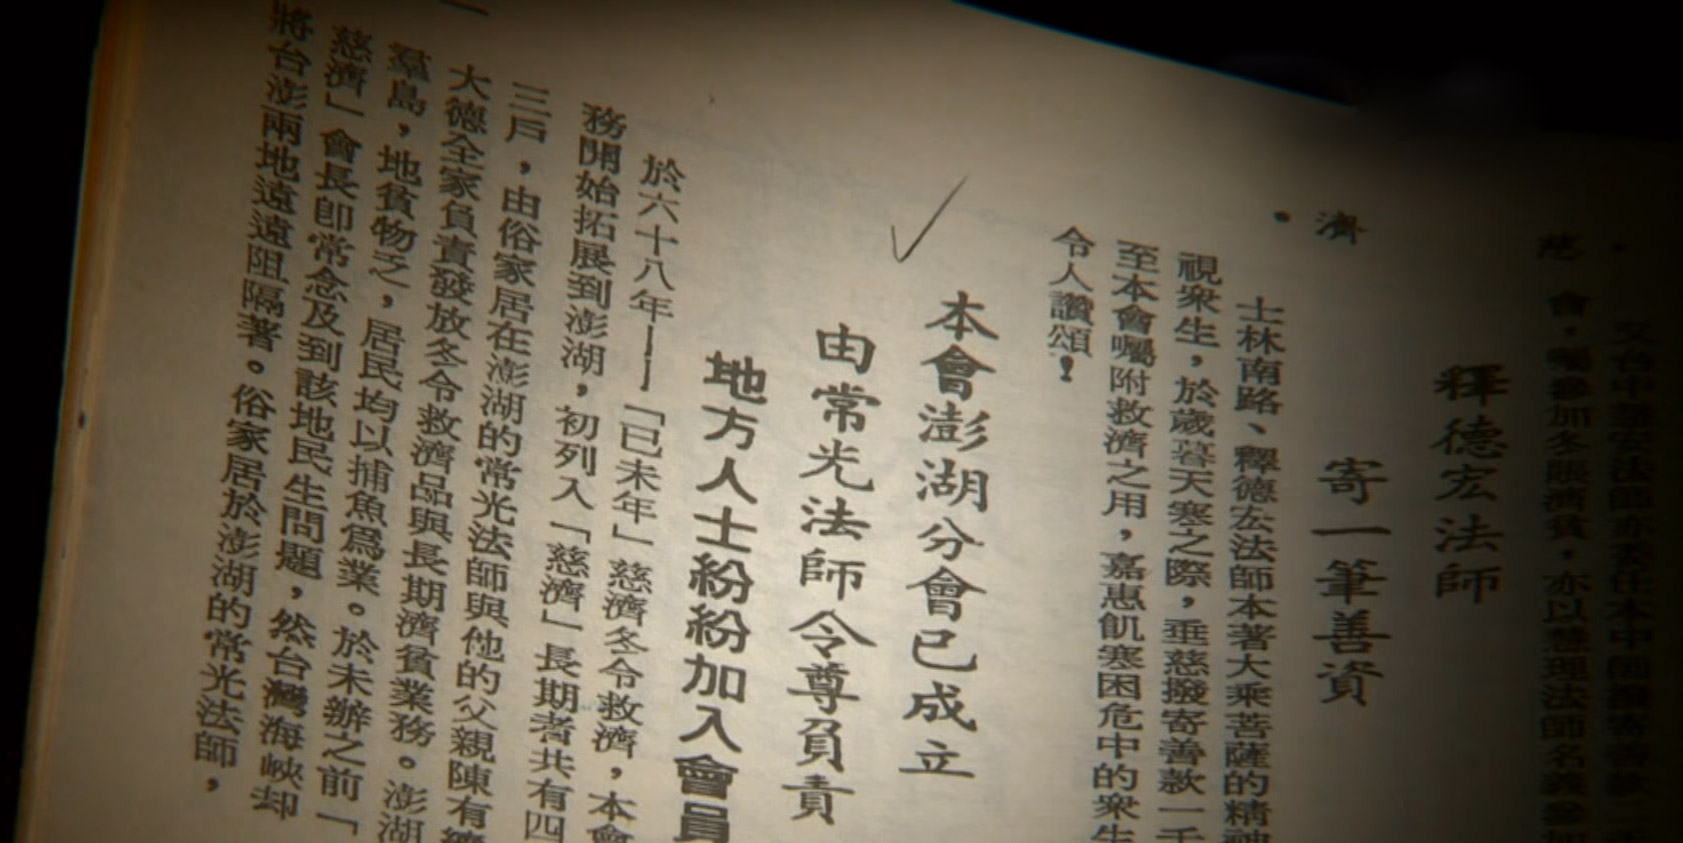 會，囑參加冬賑濟貧，亦以慧理法師名義參加
慈
釋德宏法師
寄一筆善資
濟
士林南路、釋德宏法師本著大乘菩薩的精神
視衆生，於歲暮天寒之際，垂慈撥寄善款一千
至本會囑附救濟之用，嘉惠飢寒困危中的衆生
令人讚頌！
本會澎湖分會已成立
由常光法師令尊負責
地方人士紛紛加入會員
於六十八年——「已未年」慈濟冬令救濟，本會
務開始拓展到澎湖，初列入「慈濟」長期者共有四
三戶，由俗家居在澎湖的常光法師與他的父親陳有
大德全家負責發放冬令救濟品與長期濟貧業務。澎湖
羣島，地貧物乏，居民均以捕魚爲業。於未辦之前「
慈濟」會長卽常念及到該地民生問題，然台灣海峽却
將台澎兩地遠遠阻隔著。俗家居於澎湖的常光法師，